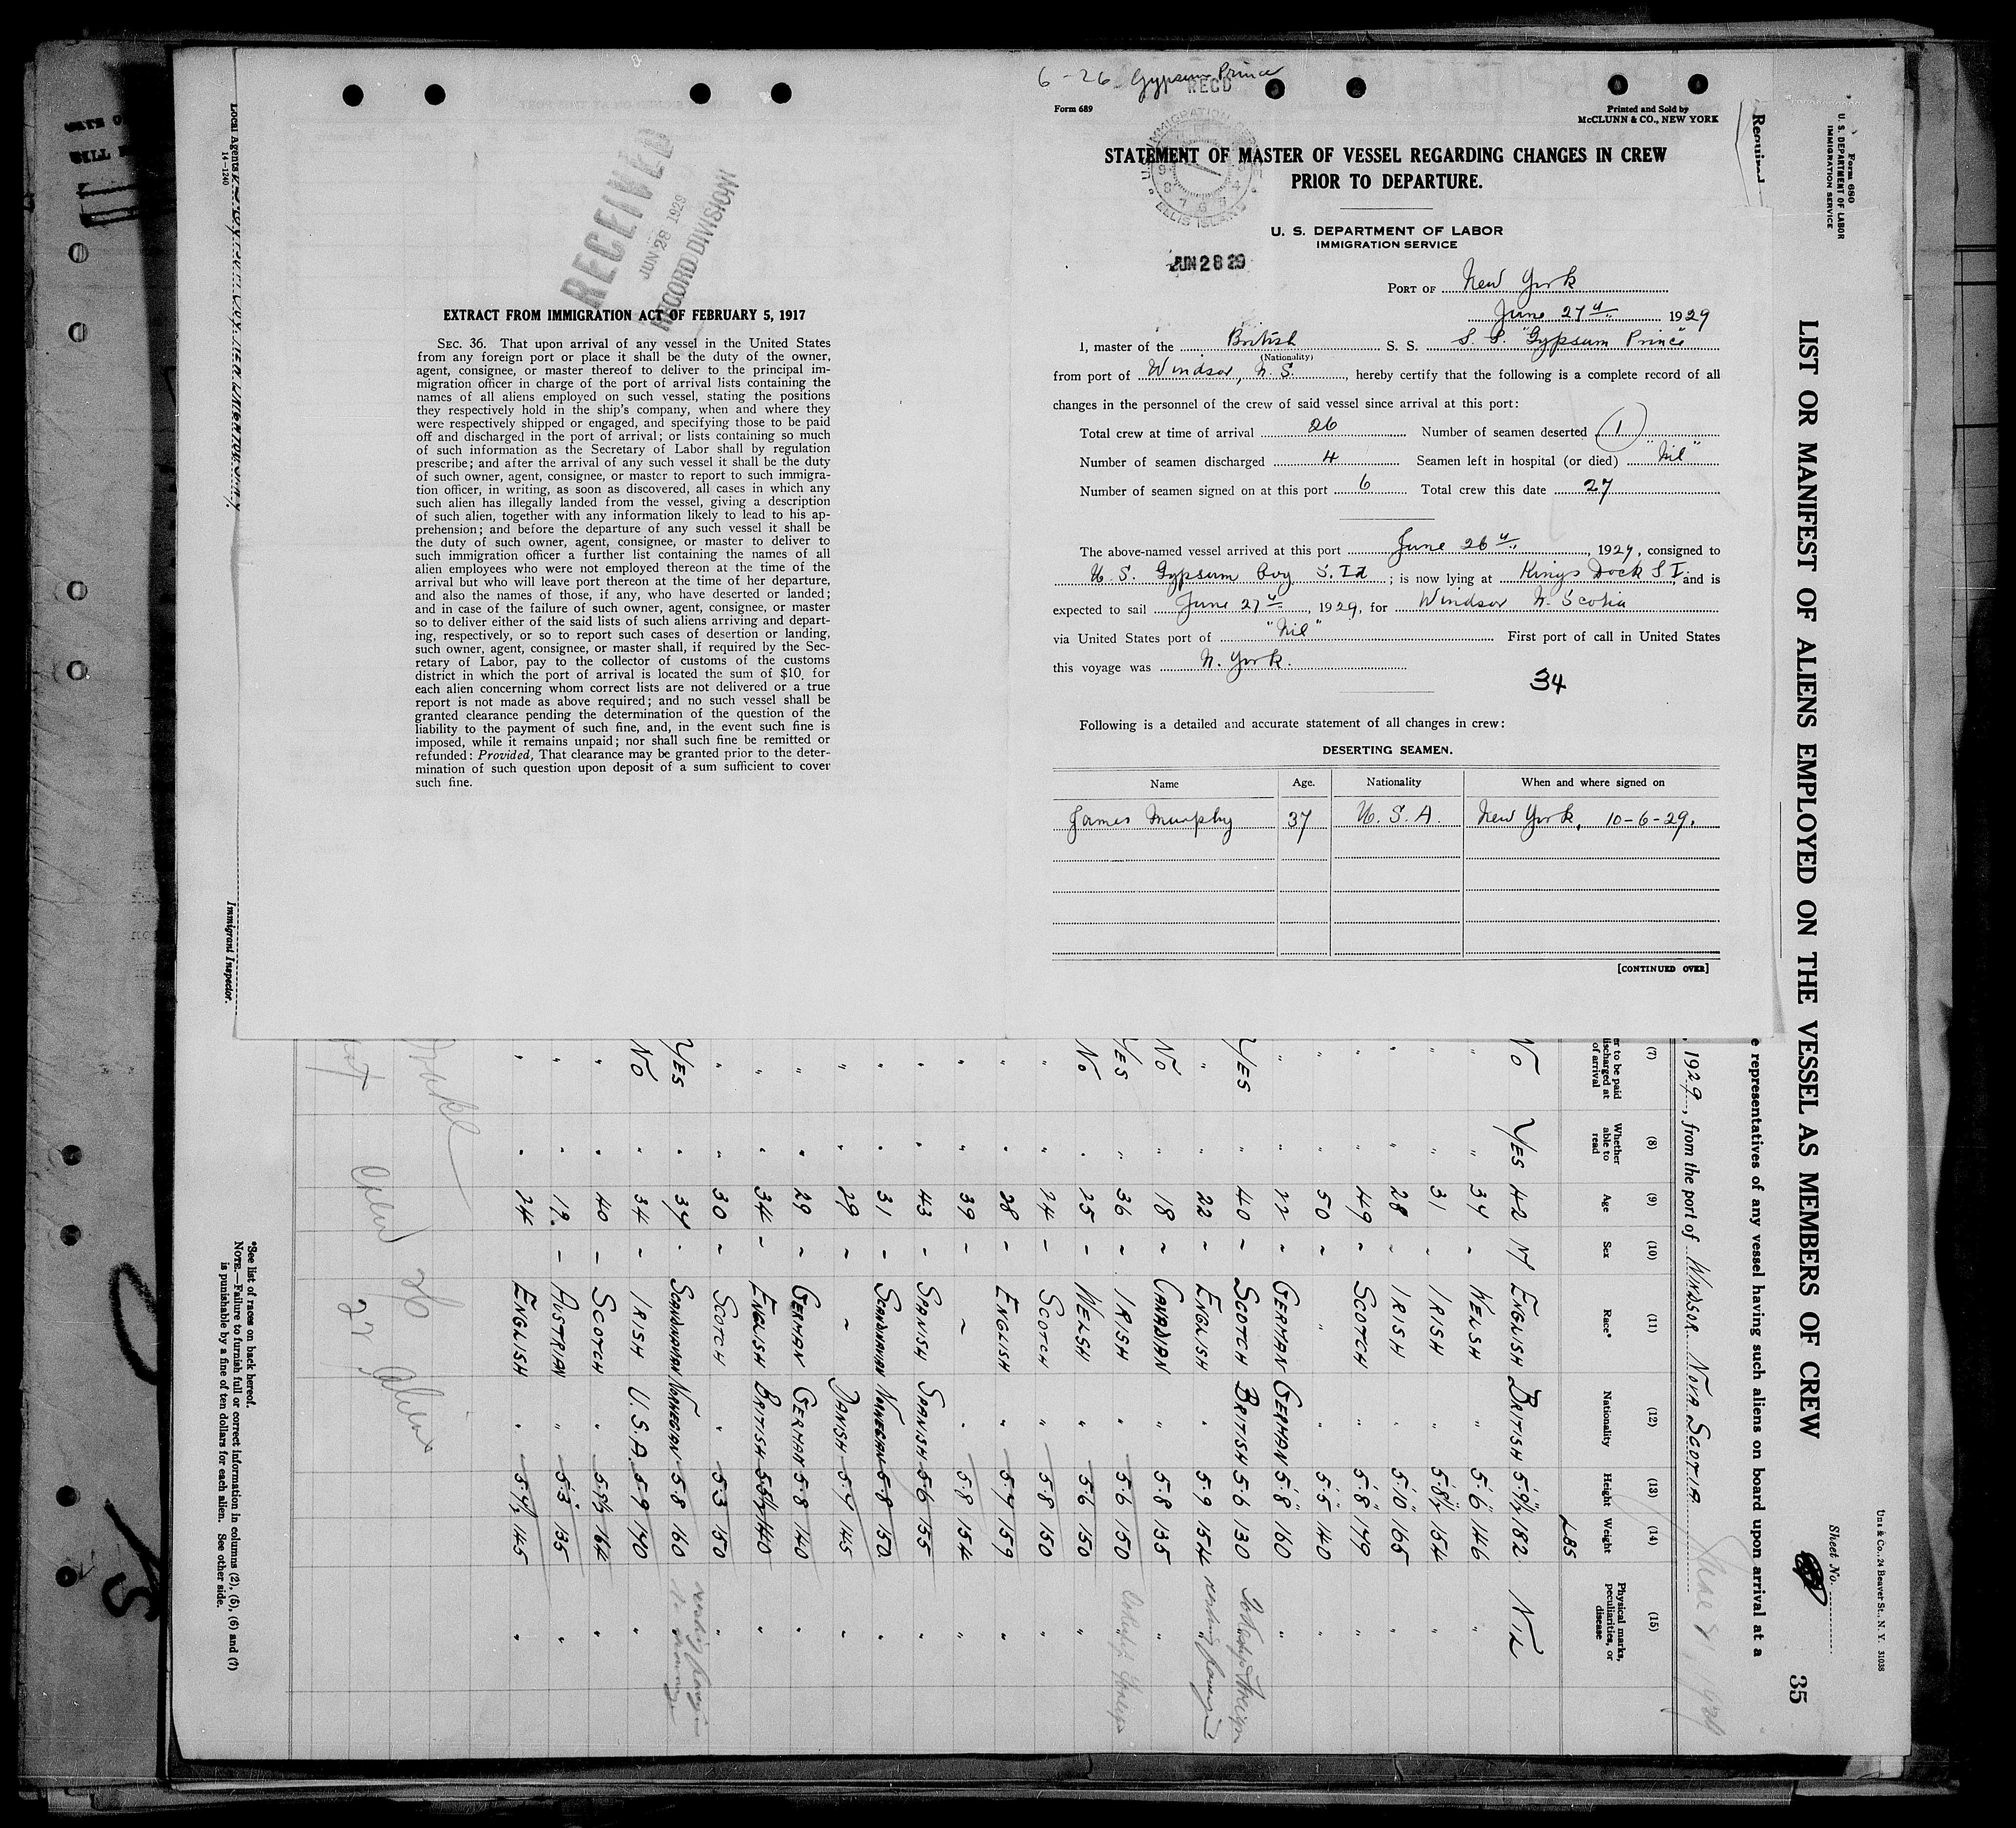 6-26 Gypsum Prince
REC'D
Form 689
Printed and Sold by
McCLUNN & CO., NEW YORK
STATEMENT OF MASTER OF VESSEL REGARDING CHANGES IN CREW
PRIOR TO DEPARTURE.
ELLIS ISLAND
U. S. DEPARTMENT OF LABOR
IMMIGRATION SERVICE
JUN 28 29
PORT OF New York
June 27th 1929
I, master of the British S. S. S. S. "Gypsum Prince"
(Nationality)
from port of Windsor, N. S., hereby certify that the following is a complete record of all
changes in the personnel of the crew of said vessel since arrival at this port:
Total crew at time of arrival 26 Number of seamen deserted 1
Number of seamen discharged 4 Seamen left in hospital (or died) "Nil"
Number of seamen signed on at this port 6 Total crew this date 27
The above-named vessel arrived at this port June 26th, 1929, consigned to
U. S. Gypsum Coy S. Id ; is now lying at Kings Dock S I. and is
expected to sail June 27th, 1929, for Windsor N. Scotia
via United States port of "Nil" First port of call in United States
this voyage was N. York.
34
Following is a detailed and accurate statement of all changes in crew:
DESERTING SEAMEN.
Name Age. Nationality When and where signed on
James Murphy 37 U. S. A. New York, 10-6-29.
[CONTINUED OVER]
RECEIVED
JUN 28 1929
RECORD DIVISION
EXTRACT FROM IMMIGRATION ACT OF FEBRUARY 5, 1917
SEC. 36. That upon arrival of any vessel in the United States
from any foreign port or place it shall be the duty of the owner,
agent, consignee, or master thereof to deliver to the principal im-
migration officer in charge of the port of arrival lists containing the
names of all aliens employed on such vessel, stating the positions
they respectively hold in the ship's company, when and where they
were respectively shipped or engaged, and specifying those to be paid
off and discharged in the port of arrival; or lists containing so much
of such information as the Secretary of Labor shall by regulation
prescribe; and after the arrival of any such vessel it shall be the duty
of such owner, agent, consignee, or master to report to such immigra-
tion officer, in writing, as soon as discovered, all cases in which any
such alien has illegally landed from the vessel, giving a description
of such alien, together with any information likely to lead to his ap-
prehension; and before the departure of any such vessel it shall be
the duty of such owner, agent, consignee, or master to deliver to
such immigration officer a further list containing the names of all
alien employees who were not employed thereon at the time of the
arrival but who will leave port thereon at the time of her departure,
and also the names of those, if any, who have deserted or landed;
and in case of the failure of such owner, agent, consignee, or master
so to deliver either of the said lists of such aliens arriving and depart-
ing, respectively, or so to report such cases of desertion or landing,
such owner, agent, consignee, or master shall, if required by the Sec-
retary of Labor, pay to the collector of customs of the customs
district in which the port of arrival is located the sum of $10 for
each alien concerning whom correct lists are not delivered or a true
report is not made as above required; and no such vessel shall be
granted clearance pending the determination of the question of the
liability to the payment of such fine, and, in the event such fine is
imposed, while it remains unpaid; nor shall such fine be remitted or
refunded: Provided, That clearance may be granted prior to the deter-
mination of such question upon deposit of a sum sufficient to cover
such fine.
Form 680
U. S. DEPARTMENT OF LABOR
IMMIGRATION SERVICE
Sheet No.
35
LIST OR MANIFEST OF ALIENS EMPLOYED ON THE VESSEL AS MEMBERS OF CREW
Required
e representatives of any vessel having such aliens on board upon arrival at a
, 1929, from the port of WINDSOR NOVA SCOTIA
(7) (8) (9) (10) (11) (12) (13) (14) (15)
er to be paid discharged at of arrival Whether able to read Age Sex Race* Nationality Height Weight Physical marks, peculiarities, or disease
LBS
NO YES 42 M ENGLISH BRITISH 5.9½ 182 NIL
" " 34 " WELSH " 5.6 146 "
" " 31 " IRISH " 5.8½ 154 "
" " 28 " IRISH " 5.10 165 "
" " 49 " SCOTCH " 5.8 179 "
" " 50 " " " 5.5 140 "
" " 22 " GERMAN GERMAN 5.8 160 "
YES " 40 " SCOTCH BRITISH 5.6 130
" " 22 " ENGLISH " 5.9 154
NO " 18 " CANADIAN " 5.8 135 "
YES " 36 " IRISH " 5.6 150
NO " 25 " WELSH " 5.6 150 "
" " 24 " SCOTCH " 5.8 150 "
" " 28 " ENGLISH " 5.4 159 "
" " 39 " " " 5.8 154 "
" " 43 " SPANISH SPANISH 5.6 155 "
" " 31 " SCANDINAVIAN NORWEGIAN 5.8 150 "
" " 29 " " DANISH 5.4 145 "
" " 29 " GERMAN GERMAN 5.8 140 "
" " 34 " ENGLISH BRITISH 5.5½ 140 "
" " 30 " SCOTCH " 5.3 150 "
YES " 34 " SCANDINAVIAN NORWEGIAN 5.8 160
NO " 34 " IRISH U.S.A. 5.9 140 "
" " 40 " SCOTCH " 5.5½ 164 "
" " 19 " AUSTRIAN " 5.3 135 "
" " 24 " ENGLISH " 5.4½ 145 "
Crew 26
22 aliens
*See list of races on back hereof.
NOTE.—Failure to furnish full or correct information in columns (2), (5), (6) and (7)
is punishable by a fine of ten dollars for each alien. See other side.
Local Agents
14-1240
Immigrant Inspector.